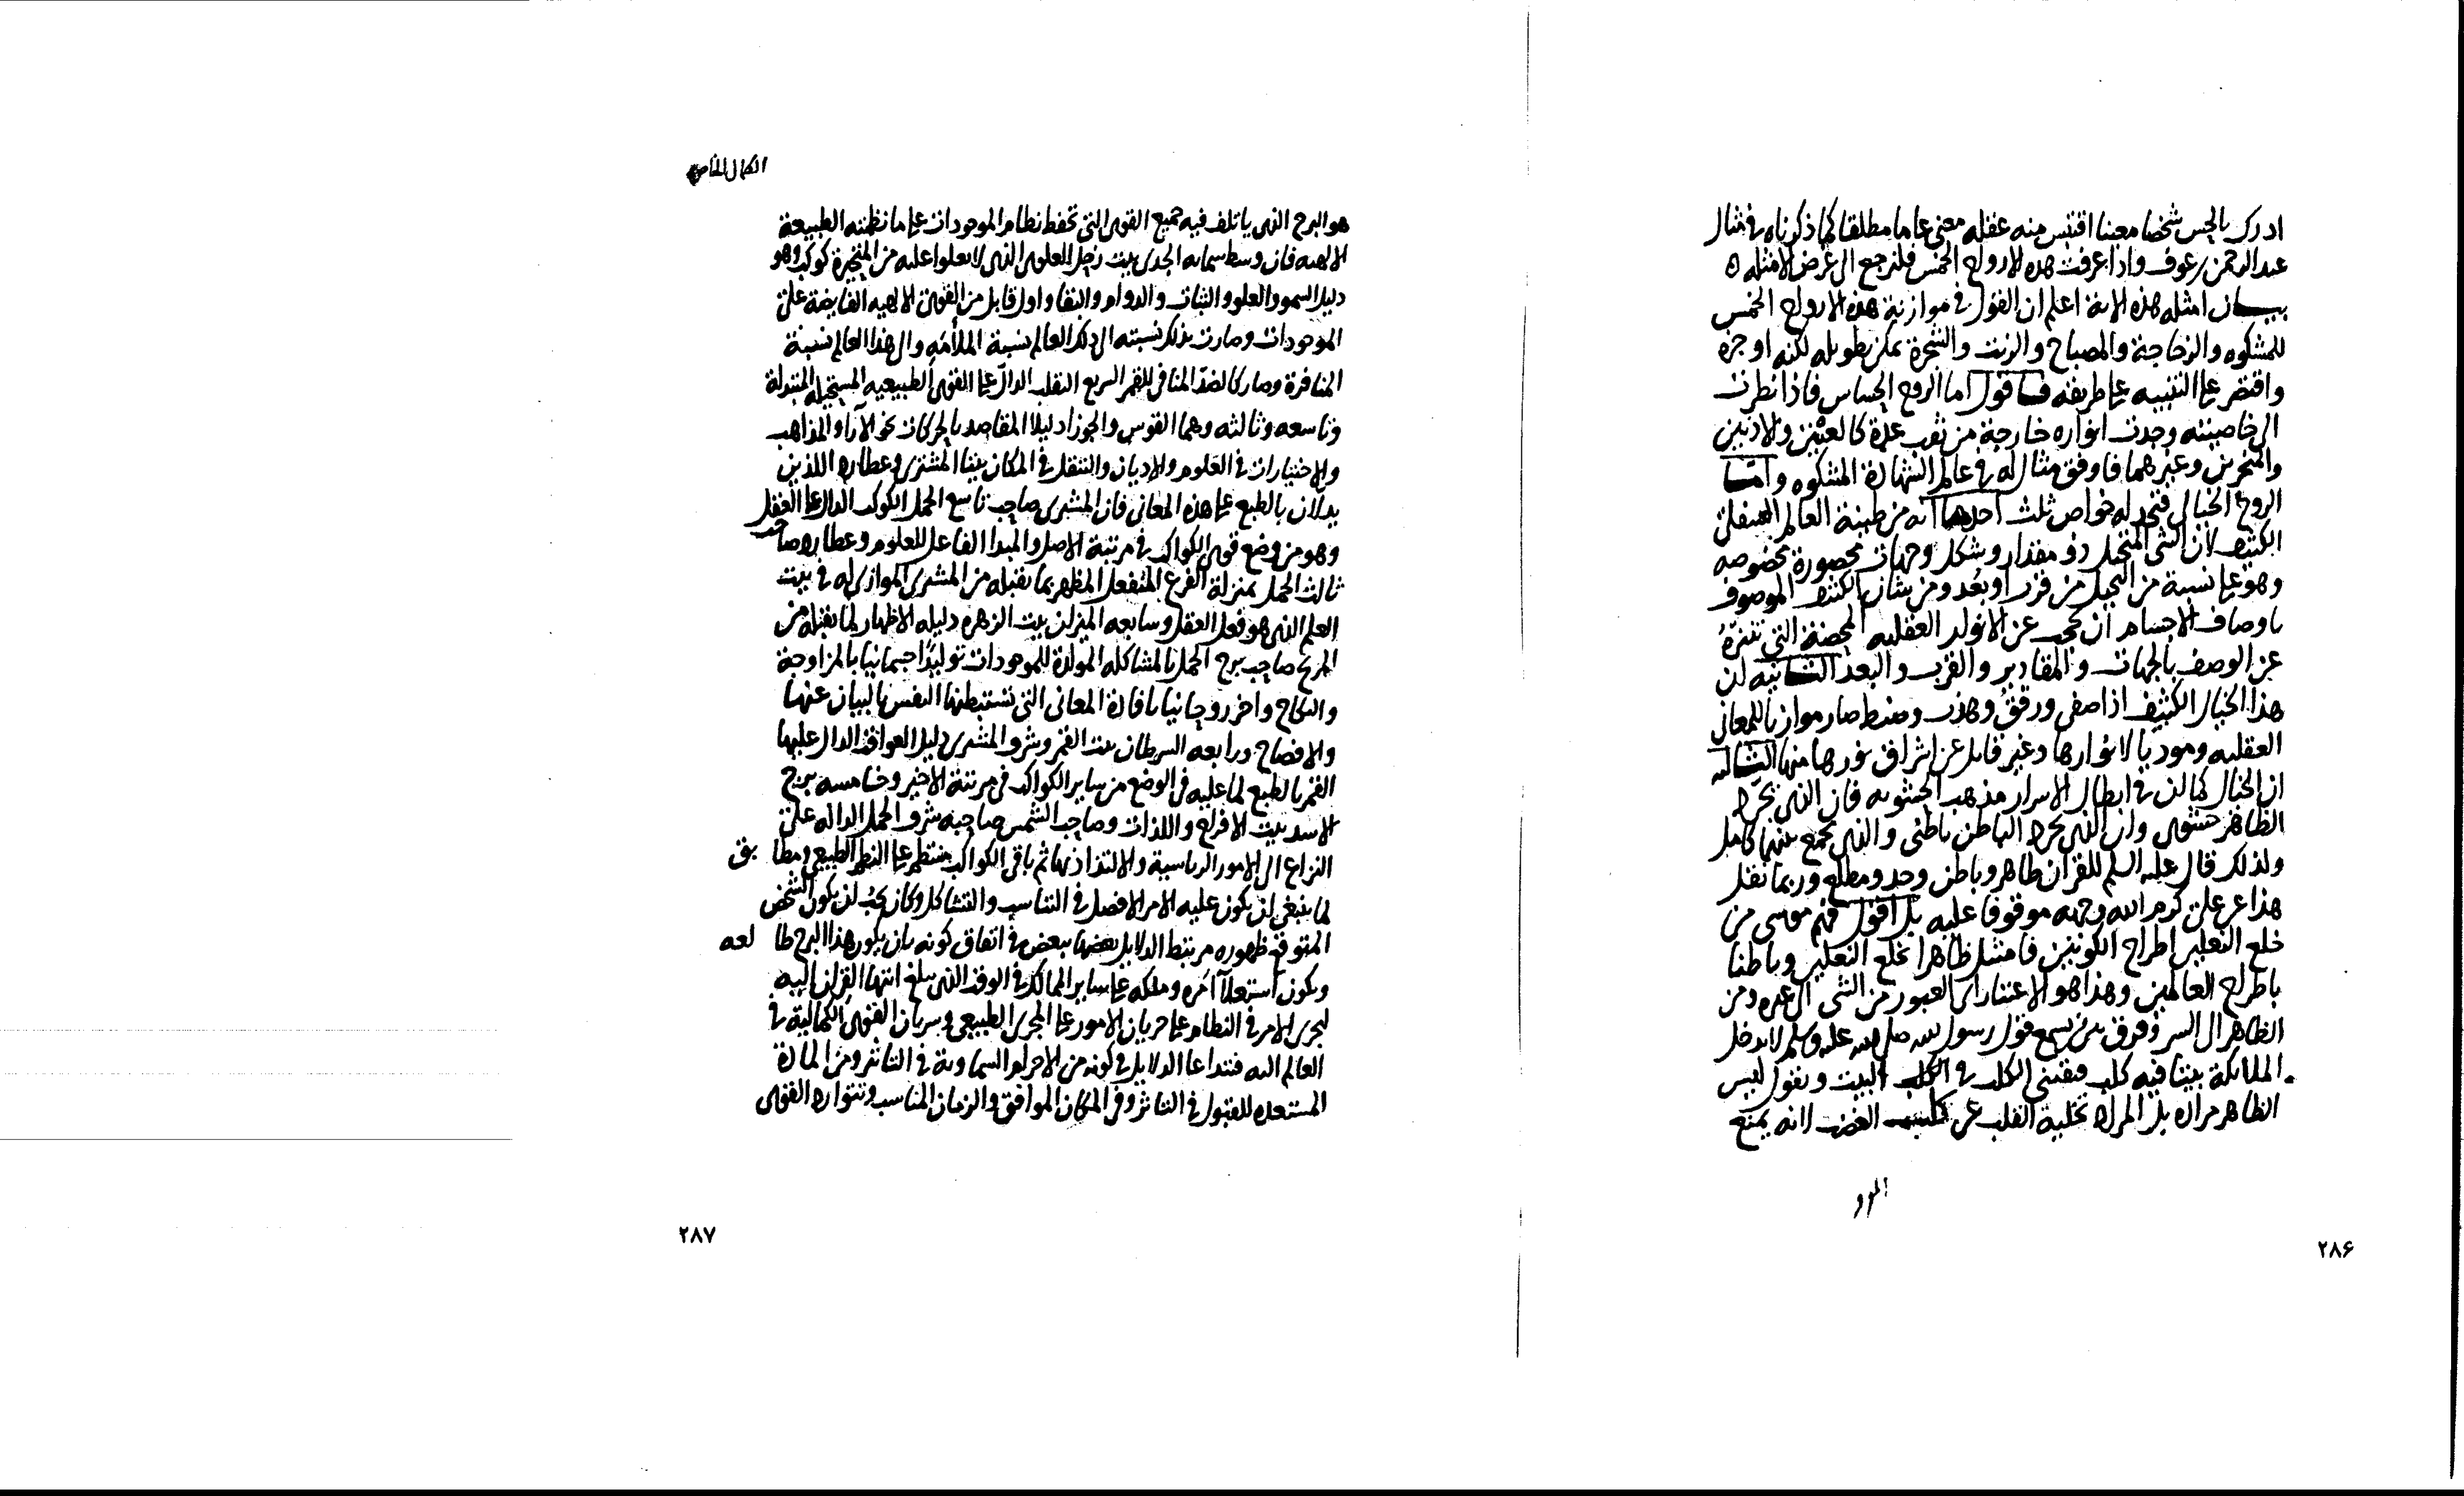 ادرك بالحس شخصا معينا اقتبس منه عقله معنى عاما مطلقا كما ذكرناه فى مثال
عبد الرحمن بن عوف واذا عرفت هذه الارواح الخمس فلنرجع الى غرض الامثله
بيان امثله هذه الاية اعلم ان القول فى موازنة هذه الارواح الخمس
للمشكوه والزجاجة والمصباح والزيت والشجرة يمكن تطويله لكنه اوجزه
واقتصر على التنبيه على طريقه فاقول اما الروح الحساس فاذا نظرت
الى خاصيته وجدت انواره خارجة من ثقب عدة كالعينين والاذنين
والمنخرين وغيرهما فاوفق مثال له فى عالم الشهادة المشكوه واما
الروح الخيالى فتجد له خواص ثلث احدها انه من طينة العالم السفلى
الكثيف لان الشى المتخيل ذو مقدار وشكل وجهات محصورة مخصوصه
وهو على نسبة من المتخيل من قرب او بعد ومن شان الكثيف الموصوف
باوصاف الاجسام ان يحجب عن الانوار العقليه المحضة التى تتنزه
عن الوصف بالجهات والمقادير والقرب والبعد الثانيه ان
هذا الخيال الكثيف اذا صفى ورقق وهذب وضبط صار موازيا للمعانى
العقليه ومؤديا لانوارها وغير حايل عن اشراق نورها منها الثالثه
الظاهر حشوى وان الذى يجرد الباطن باطنى والذى يجمع بينهما كامل
ولذلك قال عليه السلم للقران ظاهر وباطن وحد ومطلع وربما نقل
هذا عن على كرم الله وجهه موقوفا عليه بل اقول فهم موسى من
خلع النعلين اطراح الكونين فامتثل ظاهرا بخلع النعلين وباطنا
باطراح العالمين وهذا هو الاعتبار اى العبور من الشى الى غيره ومن
الظاهر الى السر وفرق بين من يسمع قول رسول الله صلى الله عليه وسلم لا يدخل
الملائكة بيتا فيه كلب فيقتنى الكلب فى البيت ويقول ليس
الظاهر مراده بل المراد تخلية القلب عن كلب الغضب لانه يمنع
٢٨۶
هو البرج الذى ياتلف فيه جميع القوى التى تحفظ نظام الموجودات على ما نظمته الطبيعة
الالهيه فان وسط سمايه الجدى بيت زحل العلوى الذى لا يعلوا عليه من المتحيرة كوكب وهو
دليل السمو والعلو والثبات والدوام والبقا واول قابل من القوى الالهيه الفايضة على
الموجودات وصارت بذلك نسبته الى ذلك العالم نسبة الملأمه والى هذا العالم نسبة
المنافرة وصار كالضد المنافى للقمر السريع التقلب الدال على القوى الطبيعيه المستحيله المتبدلة
وتاسعه وثالثه وهما القوس والجوزا دليلا المقاصد بالحركات نحو الآرا والمذاهب
والاختيارات فى العلوم والاديان والتنقل فى المكان بيتا المشترى وعطارد اللذين
يدلان بالطبع على هذه المعانى فان المشترى صاحب تاسع الحمل الكوكب الدال على العقل
وهو من وضع قوى الكواكب فى مرتبة الاصل والمبدا الفاعل للعلوم وعطارد صاحب
ثالث الحمل بمنزلة الفرع المنفعل المظهر بما يقبله من المشترى الموازى له فى بيت
العلم الذى هو فعل العقل وسابعه الميزان بيت الزهره دليله الاظهار لما يقبله من
المريخ صاحب برج الحمل بالمشاكله المولدة للموجودات توليدا جسمانيا بالمزاوجة
والنكاح واخر روحانيا بافادة المعانى التى تستنبطها النفس بالبيان عنها
والافصاح ورابعه السرطان بيت القمر وشرف المشترى دليل العواقب الدال عليها
القمر بالطبع لما عليه فى الوضع من ساير الكواكب فى مرتبة الاخير وخامسه برج
الاسد بيت الافراح واللذات وصاحبه الشمس صاحبة شرف الحمل الداله على
النزاع الى الامور الرياسية والالتذاذ بها ثم باقى الكواكب منتظم على النظم الطبيعى ومطابق
لما ينبغى ان يكون عليه الامر الافضل فى التناسب والتشاكل وكان يجب ان يكون الشخص
المتوقع ظهوره مرتبط الدلايل بعضها ببعض فى اتفاق كونه بان يكون هذا البرج طالعه
ويكون استعلآ امره وملكه على ساير الممالك فى الوقت الذى بلغ انتها القران اليه
ليجرى الامر فى النظام على جريان الامور على المجرى الطبيعى وسريان القوى الكمالية فى
العالم اليه فتتداعا الدلايل فى كونه من الاجرام السماوية فى التاثير ومن المادة
المستعده للقبول فى التاثر وفى المكان الموافق والزمان المناسب وتتوارد القوى
٢٨٧